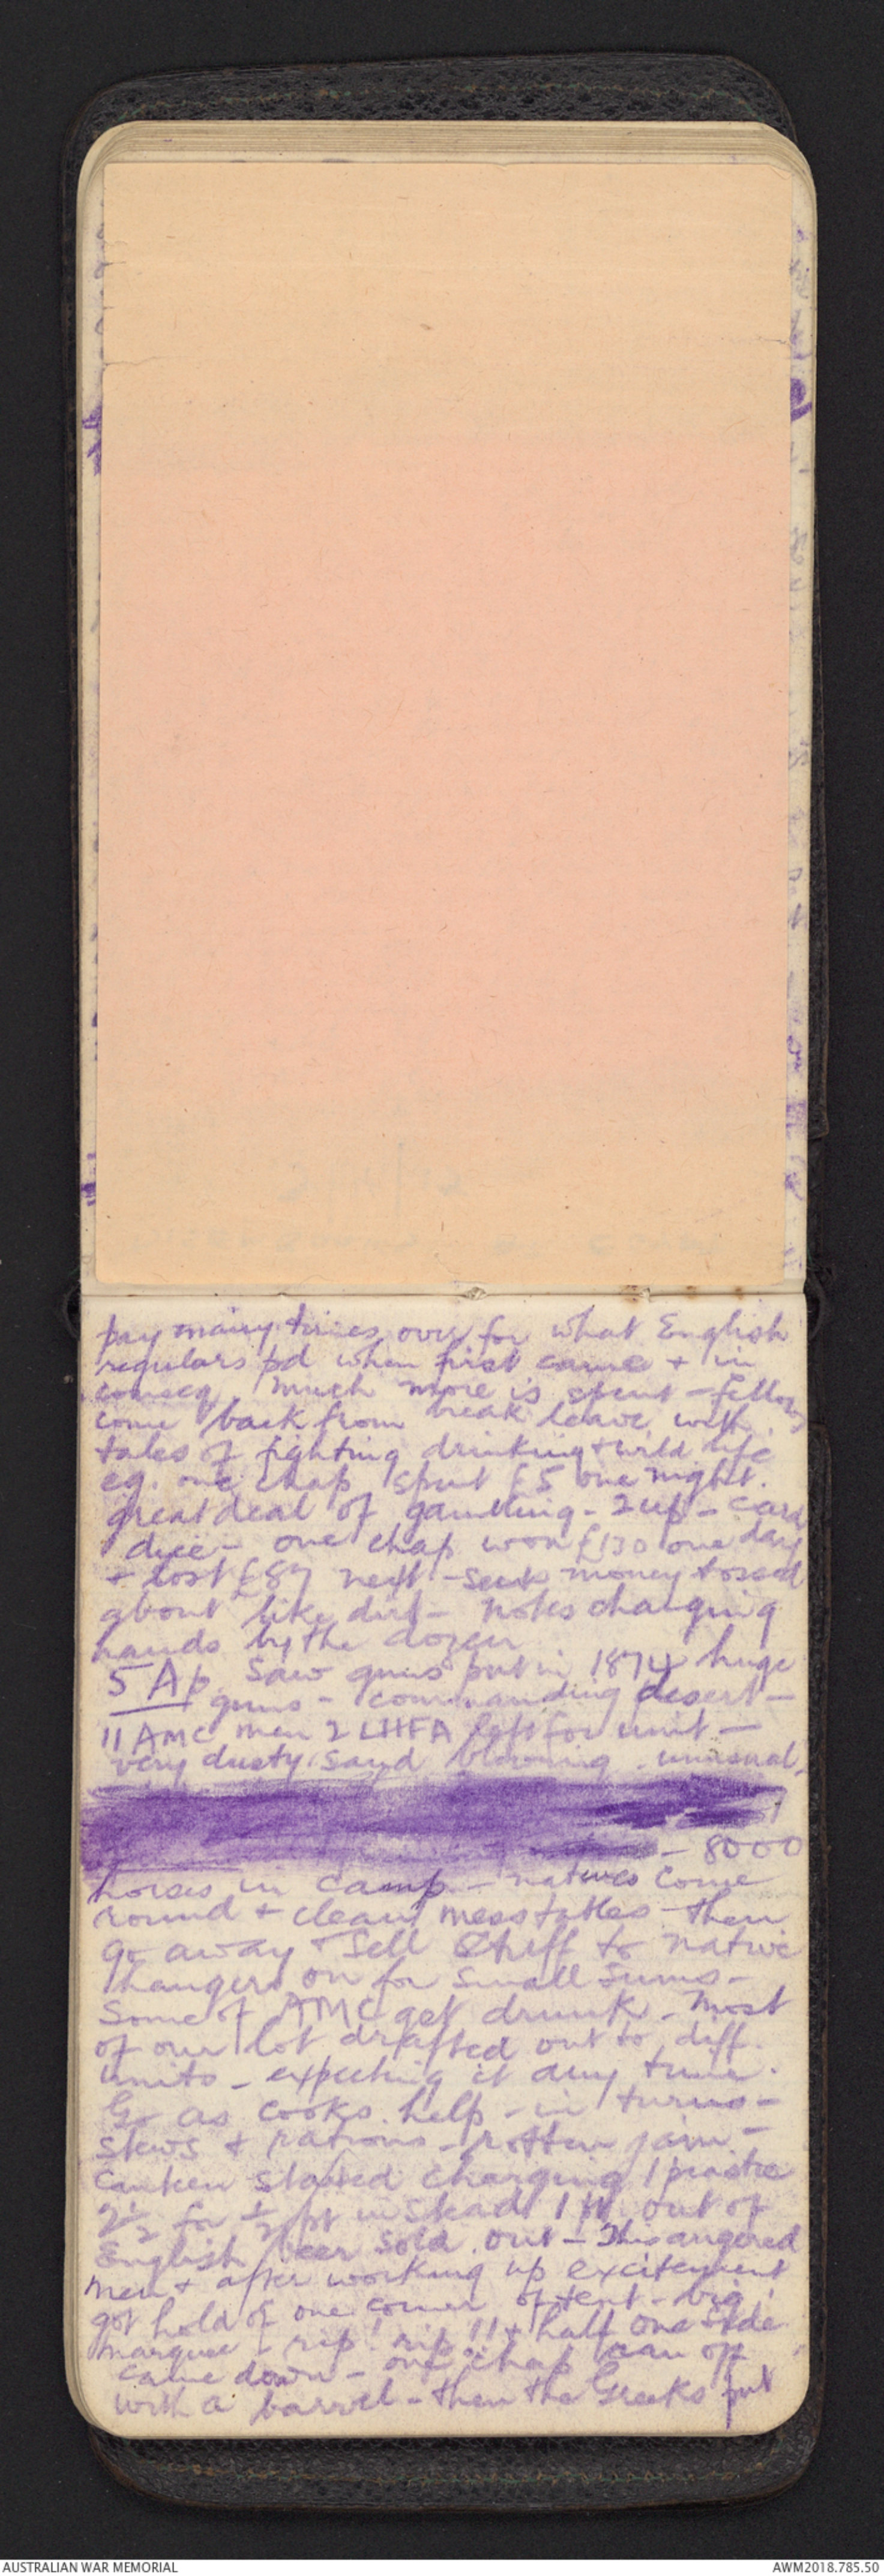 pay many times over for what English
regulars pd when first came + in
conseq. much more is spent - fellows
come back from break leave with
tales of fighting drinking + wild life
eg. one chap spent £5 one night.
great deal of gambling - 2 up - card
dice - one chap won £130 one day
+ lost £87 next - seen money tossed
about like dirt - notes changing
hands by the dozen
5 Ap. Saw guns put in 1874 huge
guns - commanding desert -
11 AMC men 2 LHFA left for unit -
very dusty sand blowing - unusual.
- 8000
horses in camp - natives come
round + clean mess tables - then
go away + sell stuff to native
hangers on for small sums -
Some of AMC get drunk - Most
of our lot drafted out to diff.
units - expecting it any time.
Go as cooks help - in turns -
stews + rations - rotten jam -
Canteen started charging 1 piastre
2½ for ½ pt instead 1 out of
English beer sold out - This angered
men + after working up excitement
got hold of one corner of tent - big
marquee - rip! rip!! + half one side
came down - one chap ran off
with a barrel - then the Greeks put
AUSTRALIAN WAR MEMORIAL
AWM2018.785.50